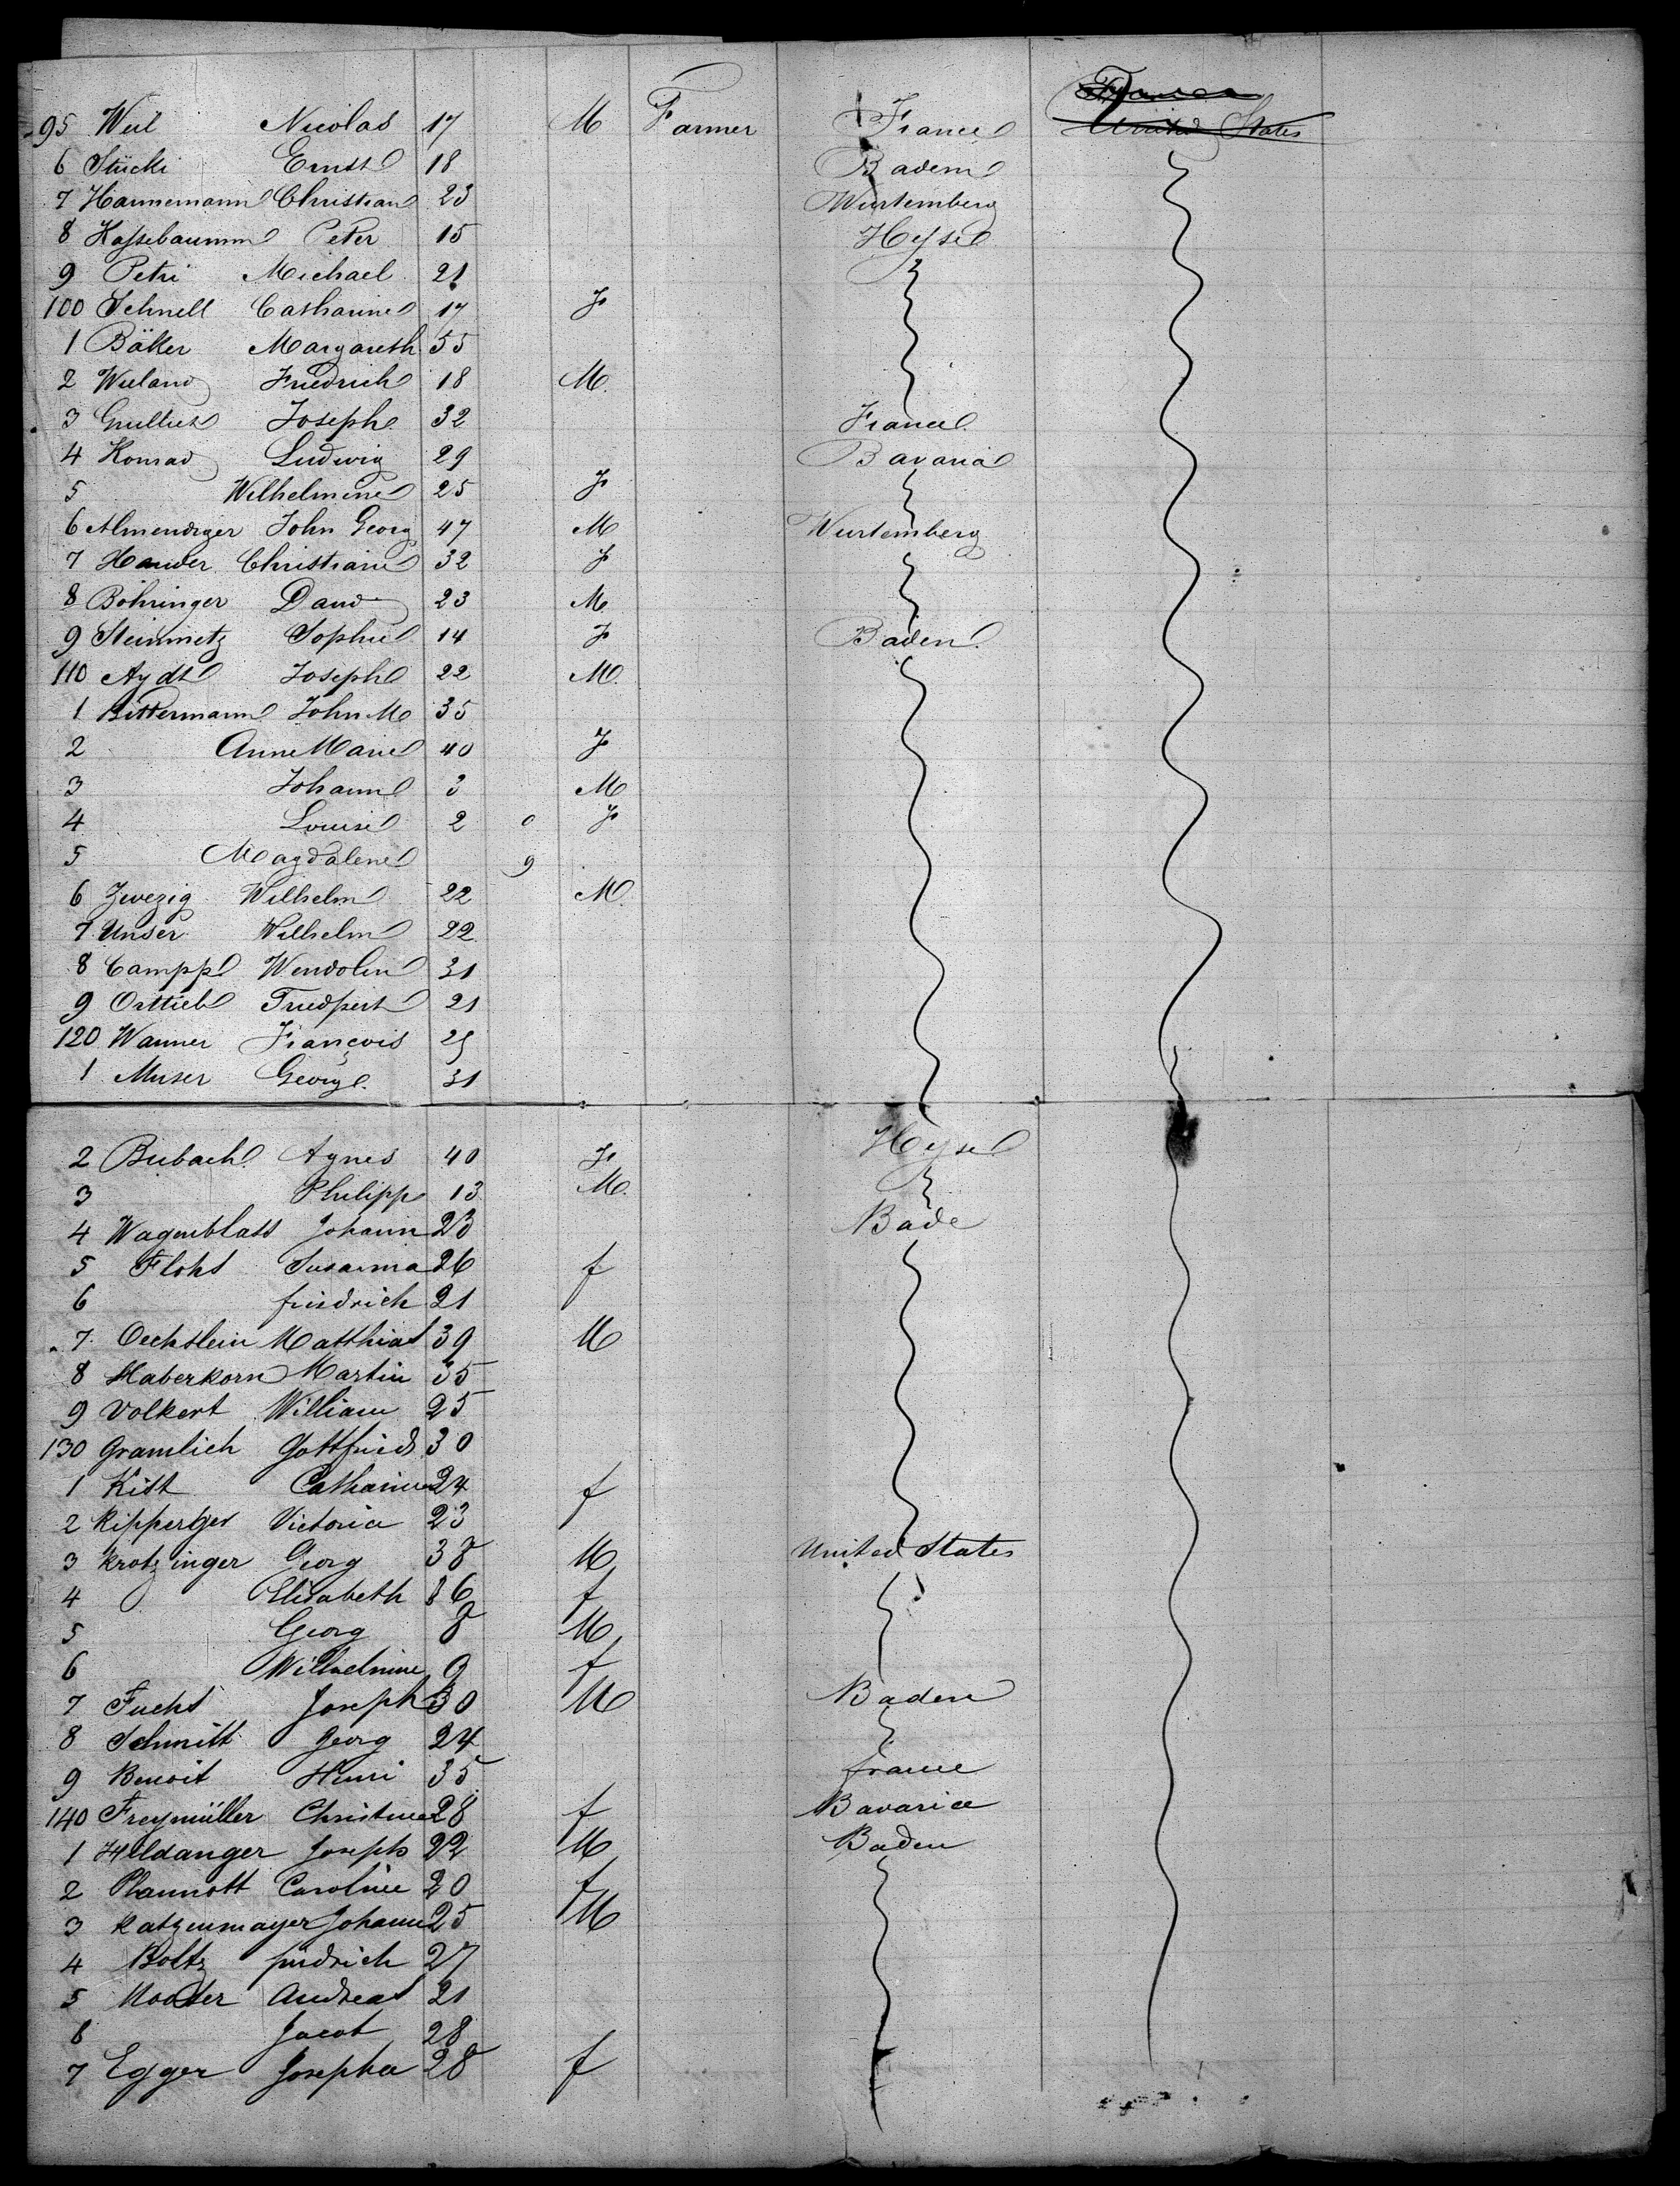 France
95 Weil Nicolas 17 M Farmer France United States
6 Stücki Ernst 18 Baden
7 Hannemann Christian 23 Wurtemberg
8 Hassebaumm Peter 15 Hesse
9 Petri Michael 21
100 Schnell Catharine 17 F
1 Bäker Margareth 55
2 Wieland Friedrich 18 M
3 Joseph 32 France
4 Konrad Ludwig 29 Bavaria
5 Wilhelmine 25 F
6 Almendiger John Georg 47 M Wurtemberg
7 Hauder Christiane 32 F
8 Böhringer David 23 M
9 Steinmetz Sophie 14 F Baden
110 Aydt Joseph 22 M
1 Bittermann John M 35
2 Anne Marie 40 F
3 Johann 3 M
4 Louise 2 0 F
5 Magdalene 9
6 Zwezig Wilhelm 22 M
7 Unser Wilhelm 22
8 Campp Wendolin 31
9 Orttieb Trudpert 21
120 Wanner François 25
1 Muser George 31
2 Bubach Agnes 40 F Hesse
3 Philipp 13 M
4 Wagenblast Johann 23 Bade
5 Flohs Susanna 26 f
6 friedrich 21
7 Oechslein Matthias 39 M
8 Haberkorn Martin 35
9 Volkert William 25
130 Gramlich Gottfried 30
1 Kist Catharine 24 f
2 Ripperger Victoria 23
3 Krotzinger Georg 38 M United States
4 Elisabeth 36 f
5 Georg 8 M
6 Wilhelmine 9 f
7 Fuchs Joseph 30 M Baden
8 Schmitt Georg 24
9 Benoit Henri 35 france
140 Freymüller Christine 28 f Bavaria
1 Hildanger Joseph 22 M Baden
2 Plannott Caroline 20 f
3 Katzenmayer Johann 25 M
4 Boltz fridrich 27
5 Andreas 21
6 Jacob 28
7 Egger Josepha 28 f